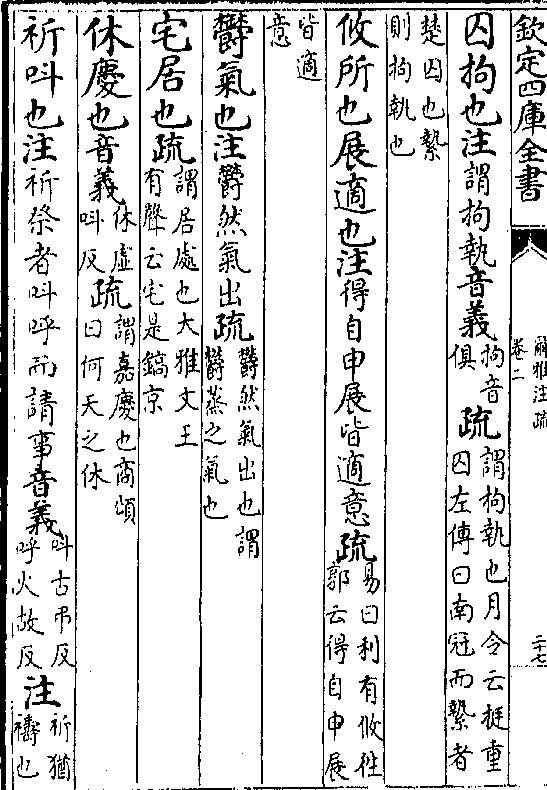 欽定四庫全書
爾雅注疏
卷二
二十七
囚拘也注謂拘執音義拘音俱疏謂拘執也月令云挺重囚左傳曰南冠而縶者
楚囚也縶則拘執也
攸所也展適也注得自申展皆適意疏易曰利有攸往郭云得自申展
皆適意
鬱氣也注鬱然氣出疏鬱然氣出也謂鬱蒸之氣也
宅居也疏謂居處也大雅文王有聲云宅是鎬京
休慶也音義休虛呌反疏謂嘉慶也商頌曰何天之休
祈呌也注祈祭者呌呼而請事音義呌古弔反呼火故反注祈猶禱也